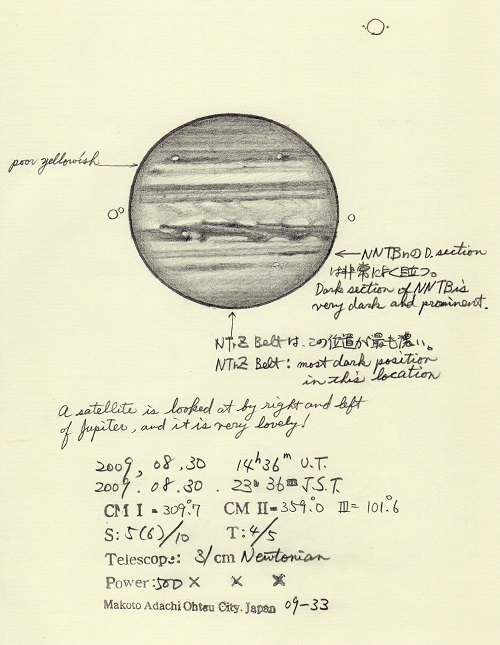 poor yellowish
NNTBnのD.section
は非常によく目立つ。
Dark section of NNTB is
very dark and prominent.
NTrZ Beltは、この位置が最も濃い。
NTrZ Belt : most dark position
in this location
A satellite is looked at by right and left
of Jupiter, and it is very lovely!
2009, 08.30 14h 36m U.T.
2009. 08.30. 23h 36m J.S.T.
CM I = 309.°7 CM II = 359.°0 III = 101.°6
S: 5(6)/10 T: 4/5
Telescop: 31cm Newtonian
Power: 500 × × ×
Makoto Adachi Ohtsu City. Japan 09-33